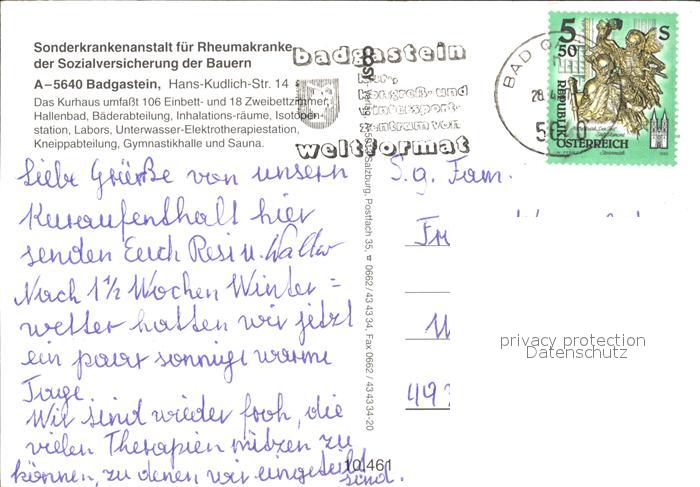 Sonderkrankenanstalt für Rheumakranke
der Sozialversicherung der Bauern
A–5640 Badgastein, Hans-Kudlich-Str. 14
Das Kurhaus umfaßt 106 Einbett- und 18 Zweibettzimmer,
Hallenbad, Bäderabteilung, Inhalations-räume, Isotopen-
station, Labors, Unterwasser-Elektrotherapiestation,
Kneippabteilung, Gymnastikhalle und Sauna.
badgastein
kur-,
kongreß- und
wintersport-
zentrum von
weltformat
BAD
28.4
5 50 S
REPUBLIK
ÖSTERREICH
Salzburg, Postfach 35, ☎ 0662/43 43 34, Fax 0662/43 43 34-20
Liebe Grüße von unserm
Kuraufenthalt hier
senden Euch Resi u. Walter
Nach 1½ Wochen Winter=
wetter hatten wir jetzt
ein paar sonnige warme
Tage.
Wir sind wieder froh, die
vielen Therapien nützen zu
können, zu denen wir eingeteilt
sind.
10 461
S.g. Fam.
Fr
W
493
privacy protection
Datenschutz